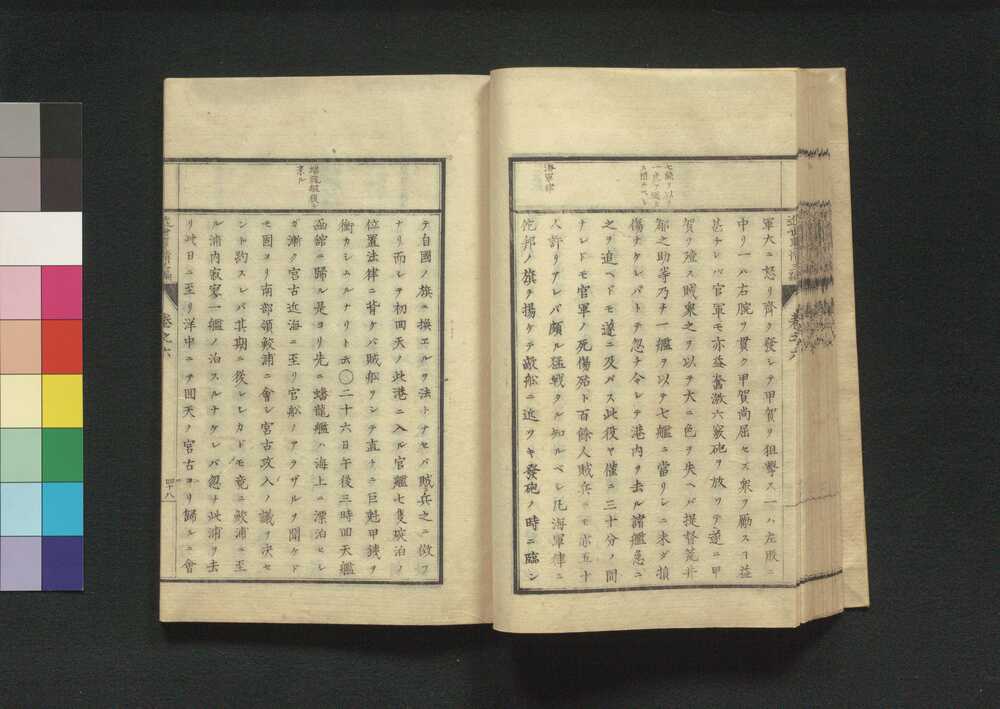 軍大ニ怒リ齊ク發シテ甲賀ヲ狙撃ス一ハ左股ニ
中リ一ハ右腕ヲ貫ク甲賀尚屈セス衆ヲ勵スヿ益
甚ケレバ官軍モ亦益奮激六窽砲ヲ放ツテ遂ニ甲
賀ヲ殪ス賊衆之ヲ以テ大ニ色ヲ失ヘバ提督荒井
郁之助等乃チ一艦ヲ以テ七艦ニ當リシニ未ダ損
傷ナケレバトテ忽チ令シテ港内ヲ去ル諸艦急ニ
之ヲ追ヘドモ遂ニ及バス此役ヤ僅ニ三十分ノ間
ナレドモ官軍ノ死傷殆ト百餘人賊兵ニモ亦五十
人許リアレバ頗ル猛戰タル知ルベシ凡海軍律ニ
佗邦ノ旗ヲ揚ケテ敵船ニ近ヅキ發砲ノ時ニ臨ン
海軍律
近世事情二編
卷之六
テ自國ノ旗ニ換エルヲ法トナセバ賊兵之ニ傚フ
ナリ而シテ初回天ノ此港ニ入ル官艦七隻碇泊ノ
位置法律ニ背ケバ賊船ヲシテ直チニ巨魁甲銕ヲ
衝カシムルナリト云〇二十六日午後三時回天艦
函館ニ歸ル是ヨリ先ニ蟠龍艦ハ海上ニ漂泊セシ
ガ漸ク宮古近海ニ至リ官船ノアラザルヲ聞ケド
モ固ヨリ南部領鮫浦ニ會シ宮古攻入ノ議ヲ決セ
ント約スレバ其期ニ後レシカドモ竟ニ鮫浦ニ至
ル浦内寂寥一艦ノ泊スルナケレバ忽チ此浦ヲ去
リ此日ニ至リ洋中ニテ回天ノ宮古ヨリ歸ルニ會
蟠龍艦後レ
來ル
卷之六
四十八